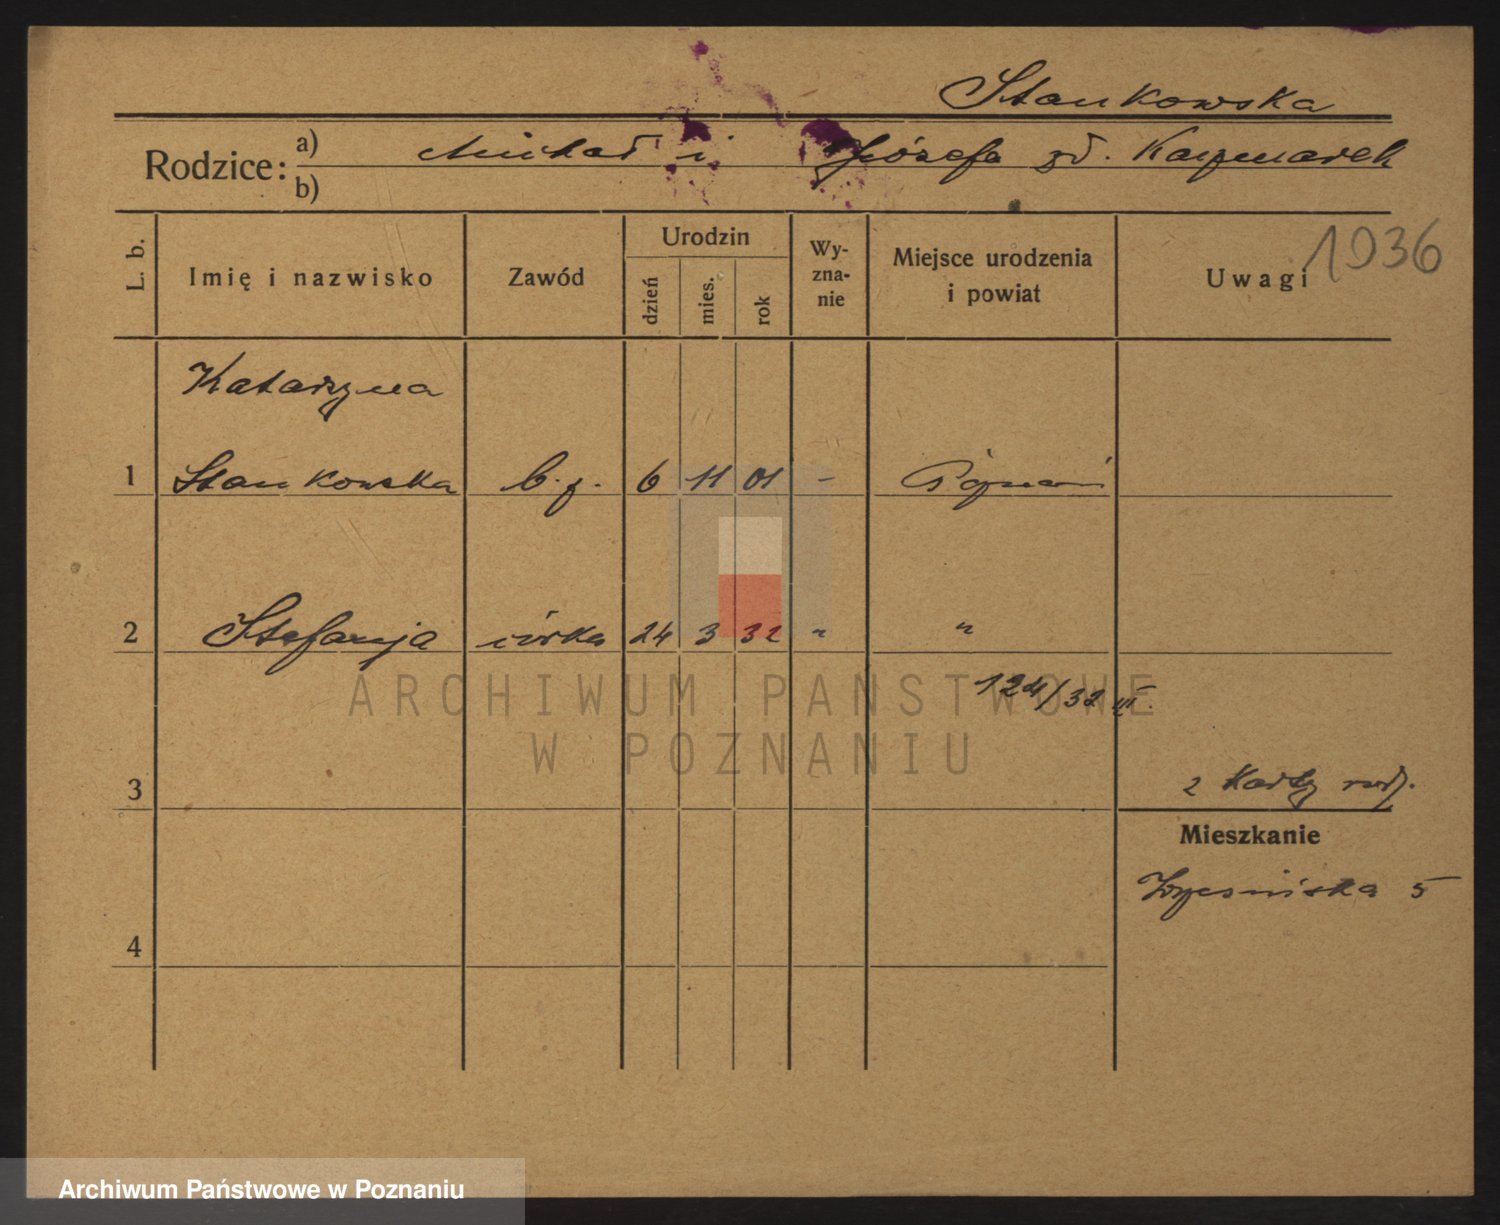 Stankowska
Rodzice: a) Michał i Józefa zd. Kaczmarek
b)
L. b. Imię i nazwisko Zawód Urodzin dzień mies. rok Wy-zna-nie Miejsce urodzenia i powiat Uwagi 1936
Katarzyna
1 Stankowska b. z. 6 11 01 - Poznań
2 Stefanja córka 24 3 32 " "
124/32 III.
ARCHIWUM PAŃSTWOWE
W POZNANIU
3 2 Karty rodz.
Mieszkanie
Wrzesińska 5
4
Archiwum Państwowe w Poznaniu